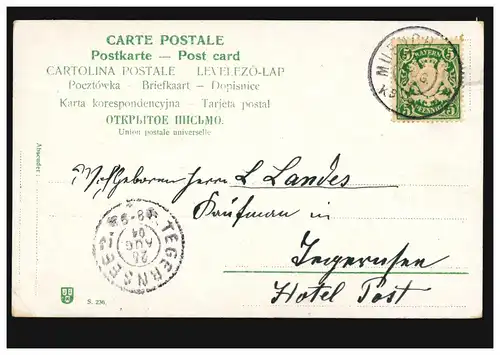 CARTE POSTALE
Postkarte — Post card
CARTOLINA POSTALE LEVELEZŐ-LAP
Pocztówka — Briefkaart — Dopisnice
Karta korespondencyjna — Tarjeta postal
ОТКРЫТОЕ ПИСЬМО.
Union postale universelle
BAYERN
5 5
PFENNIG
Absender:
Herrn L. Landes
Kaufman in
TEGERNSEE
8-9
26
AUG
04
Tegernsee
Hotel Post
S. 236.